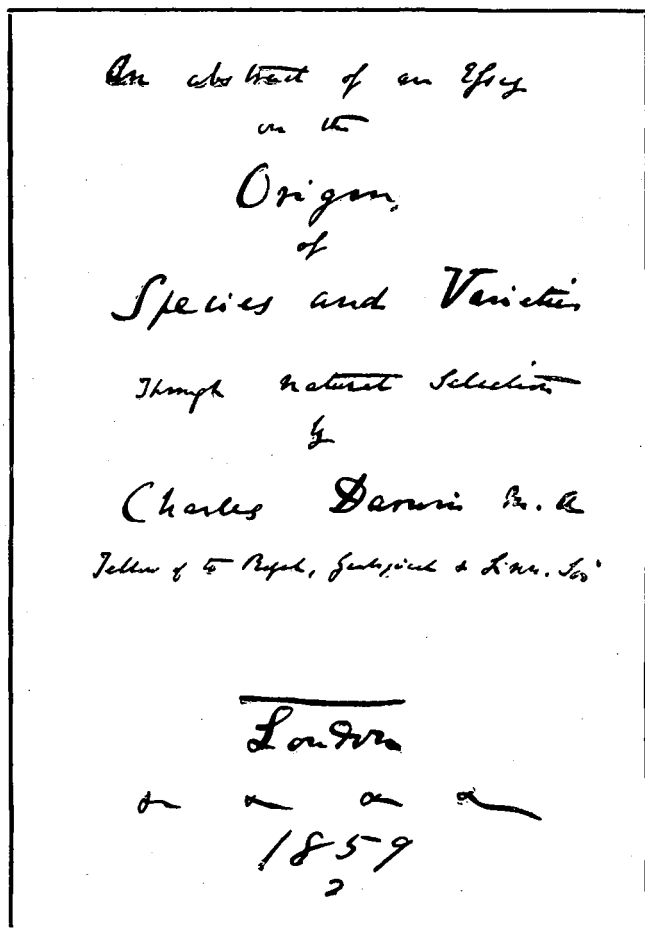 An abstract of an Essay
on the
Origin
of
Species and Varieties
Through Natural Selection
by
Charles Darwin M. A
Fellow of the Royal, Geological & Linn. Soc
London
&c &c &c &c
1859
2